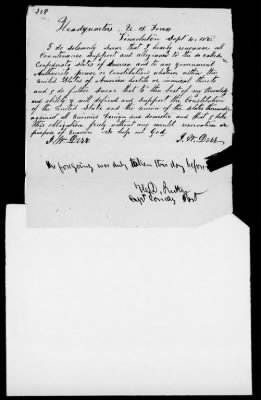 Headquarters U. S. Forces
Lincolnton Sept 4. 186
I do solemnly swear that I hereby renounce all
Countenance support and allegiance to the so called
Confederate States of America and to any government
Authority power or constitution whatever within the
United States of America hostile or inimical thereto
and I do further swear that to the best of my knowledge
and ability I will defend and support the Constitution
of the United States and the union of the states thereunder
against all enemies foreign and domestic and that I take
this obligation freely without any mental reservation or
purpose of evasion So help me God
J. W. Derr J. W. Derr
The foregoing was duly taken this day before
Capt Comdg Post